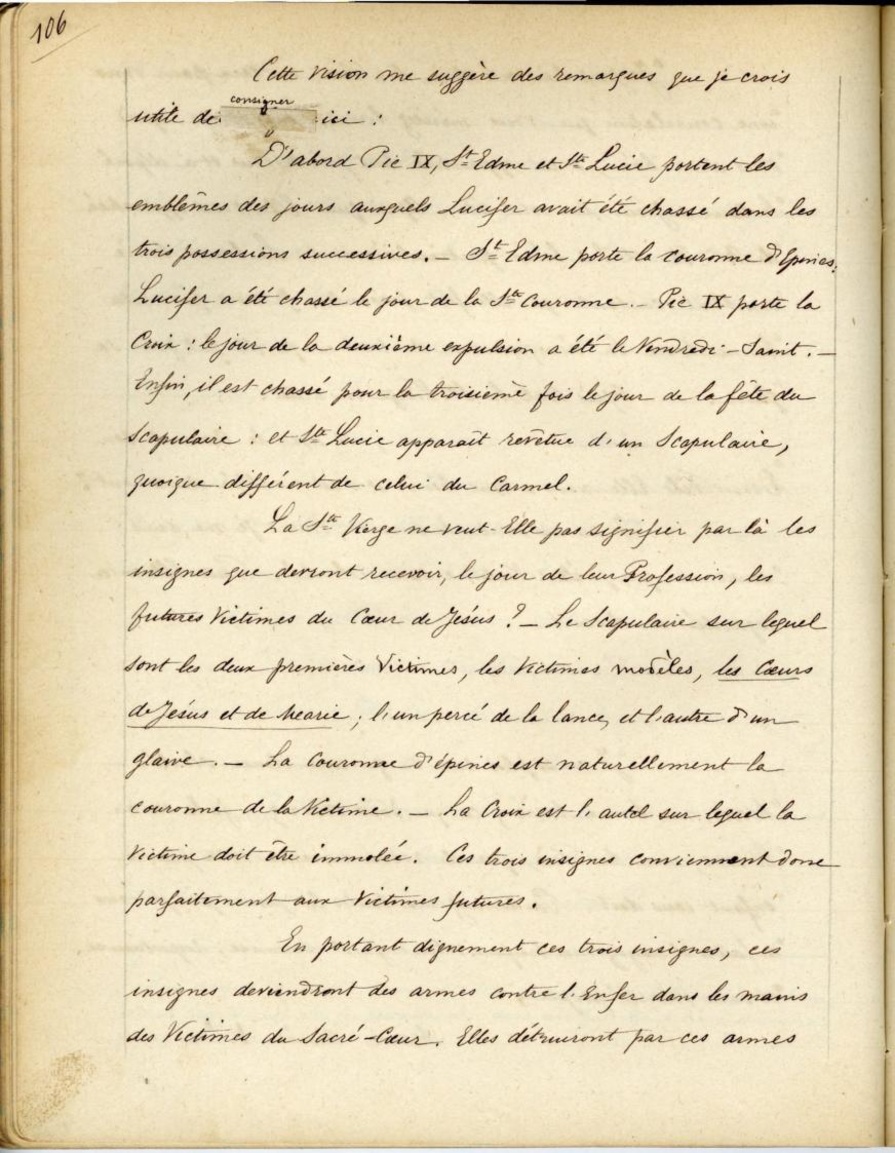 106
Cette vision me suggère des remarques que je crois
utile de consigner ici :
D'abord Pie IX, St Edme et Ste Lucie portent les
emblêmes des jours auxquels Lucifer avait été chassé dans les
trois possessions successives. — St Edme porte la couronne d'Epines:
Lucifer a été chassé le jour de la Ste Couronne. — Pie IX porte la
Croix : le jour de la deuxième expulsion a été le Vendredi-Saint. —
Enfin, il est chassé pour la troisième fois le jour de la fête du
Scapulaire : et Ste Lucie apparaît revêtue d'un Scapulaire,
quoique différent de celui du Carmel.
La Ste Vierge ne veut-Elle pas signifier par là les
insignes que devront recevoir, le jour de leur Profession, les
futures Victimes du Cœur de Jésus ? — Le Scapulaire sur lequel
sont les deux premières Victimes, les Victimes modèles, les Cœurs
de Jésus et de Marie ; l'un percé de la lance, et l'autre d'un
glaive. — La Couronne d'épines est naturellement la
couronne de la Victime. — La Croix est l'autel sur lequel la
Victime doit être immolée. Ces trois insignes conviennent donc
parfaitement aux Victimes futures.
En portant dignement ces trois insignes, ces
insignes deviendront des armes contre l'Enfer dans les mains
des Victimes du Sacré-Cœur. Elles détruiront par ces armes